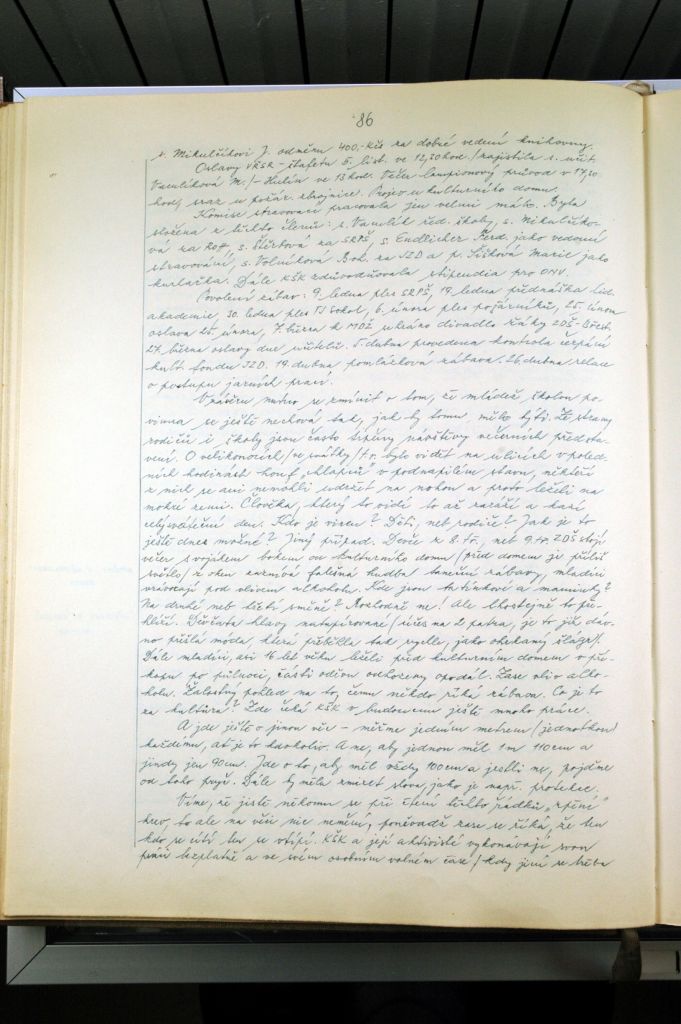 86
s. Mikulčíkovi J. odměnu 400,- Kčs za dobré vedení knihovny.
Oslavy VŘSR - štafeta 5. list. ve 12,30 hod. /zajistila s. učit.
Vaculíková M./ - Hulín ve 13 hod. Večer lampionový průvod v 17,30
hod, sraz u požár. zbrojnice. Projev u kulturního domu.
Komise stravovací pracovala jen velmi málo. Byla
složena z těchto členů: s. Vaculík řed. školy, s. Mikulčíko-
vá za ROH, s. Štěrbová za SRPŠ, s. Endlicher Ferd. jako vedoucí
stravování, s. Volníková Boh. za JZD a p. Sišková Marie jako
kuchařka. Dále KŠK zdůvodňovala stipendia pro ONV.
Povolení zábav: 9. ledna ples SRPŠ, 19. ledna přednáška lid.
akademie, 30. ledna ples TJ Sokol, 6. února ples požárníků, 25. únem
oslava 25. února, 7. března k MDŽ sehráno divadlo žáky ZDŠ - Břest.
27. března oslavy dne učitelů. 5. dubna provedena kontrola čerpání
kult. fondu JZD. 19. dubna pomlázková zábava. 26. dubna relace
o postupu jarních prací.
V závěru nutno se zmínit o tom, že mládež školou po
vinná se ještě nechová tak, jak by tomu mělo býti. Ze strany
rodičů i školy jsou často trpěny návštěvy večerních předsta-
vení. O velikonocích /ve svátky/ t.r. bylo vidět na ulicích v poled-
ních hodinách houf „chlapců" v podnapilém stavu, někteří
z nich se ani nemohli udržet na nohou a proto leželi na
mokré zemi. Člověka, který to vidí to až zaráží a kazí
celý sváteční den. Kdo je vinen? Děti, neb rodiče? Jak je to
ještě dnes možné? Jiný případ. Děvče z 8. tř., neb 9. tř. ZDŠ stojí
večer s vojákem bokem od kulturního domu /před domem je příliš
světlo/ z oken zaznívá falešná hudba taneční zábavy, mladíci
vrávorají pod vlivem alkoholu. Kde jsou tatínkové a maminky?
Na druhé neb třetí směně? Rozhodně ne! Ale lhostejně to pře-
hlíží. Děvčata hlavy natupírované /účes na 2 patra, je to již dáv-
no přešlá móda, která přeběhla tak rychle, jako otřekaný šlágr/.
Dále mladíci, asi 16 let věku leželi před kulturním domem v pří-
kopu po půlnoci, části oděvu odhozeny opodál. Zase vliv alko-
holu. Žalostný pohled na to, čemu někdo říká zábava. Co je to
za kulturu? Zde čeká KŠK v budoucnu ještě mnoho práce.
A jde ještě o jinou věc - měřme jedním metrem /jednotkou/
každému, ať je to kdokoliv. A ne, aby jednou měl 1 m 110 cm a
jindy jen 90 cm. Jde o to, aby měl vždy 100 cm a jestli ne, pojďme
od toho pryč. Dále by měla zmizet slova, jako je např. protekce.
Víme, že jistě někomu se při čtení těchto řádků „zpění"
krev, to ale na věci nic nemění, poněvadž zase se říká, že ten
kdo se cítí ten se vtípí. KŠK a její aktivisté vykonávají svou
funkci bezplatně a ve svém osobním volném čase /kdy jiní se třeba